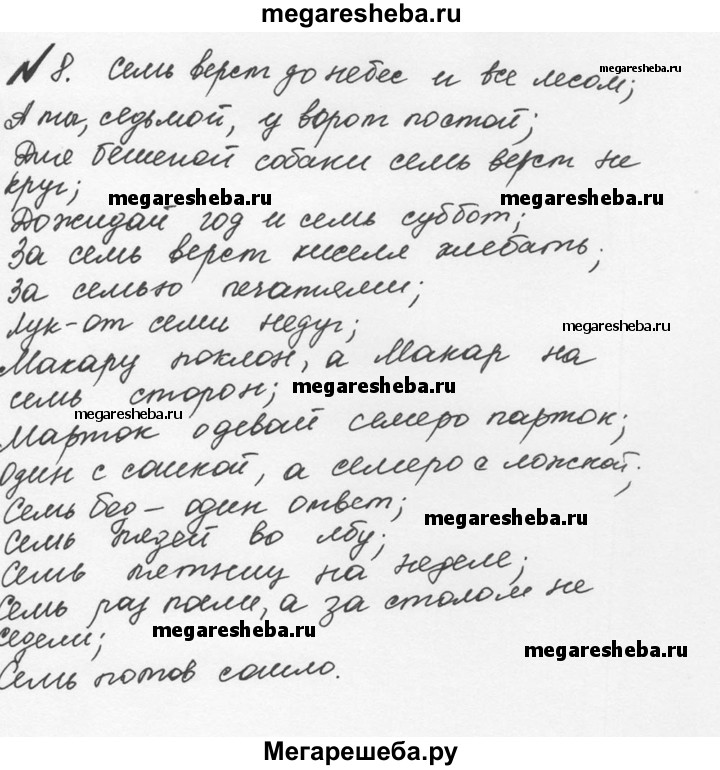 megaresheba.ru
№ 8. Семь верст до небес и все лесом;
megaresheba.ru
А ты, седьмой, у ворот постой;
Для бешеной собаки семь верст не
круг;
megaresheba.ru
megaresheba.ru
Дожидай год и семь суббот;
За семь верст киселя хлебать;
За семью печатями;
Лук-от семи недуг;
megaresheba.ru
Макару поклон, а Макар на
семь сторон;
megaresheba.ru
megaresheba.ru
Марток одевай семеро парток;
Один с сошкой, а семеро с ложкой;
Семь бед – один ответ;
megaresheba.ru
Семь пядей во лбу;
Семь пятниц на неделе;
Семь раз поели, а за столом не
сидели;
megaresheba.ru
megaresheba.ru
Семь потов сошло.
Мегарешеба.ру